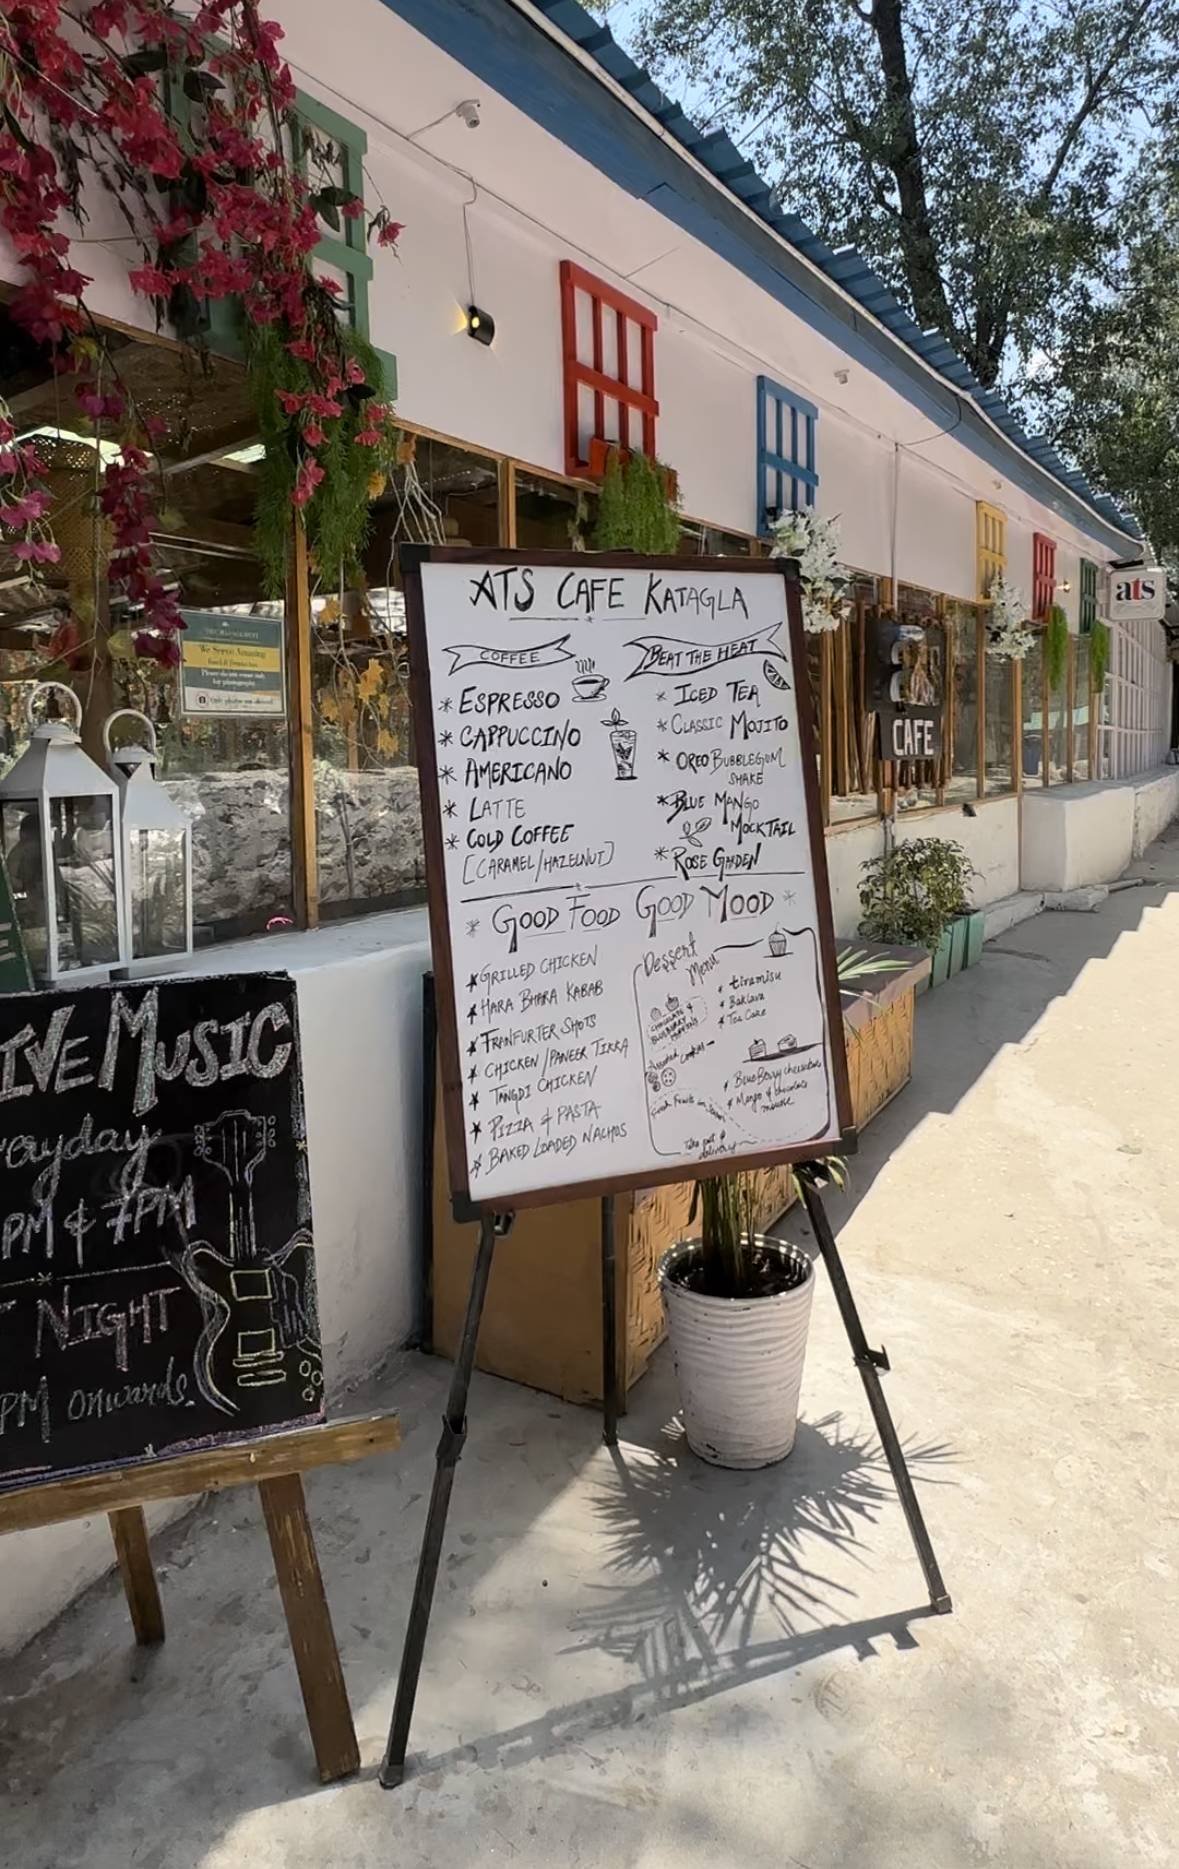 ATS CAFE KATAGLA
COFFEE
* ESPRESSO
* CAPPUCCINO
* AMERICANO
* LATTE
* COLD COFFEE
[CARAMEL/HAZELNUT]
BEAT THE HEAT
* ICED TEA
* CLASSIC MOJITO
* OREO BUBBLEGUM
SHAKE
* BLUE MANGO
MOCKTAIL
* ROSE GARDEN
* GOOD FOOD GOOD MOOD *
* GRILLED CHICKEN
* HARA BHARA KABAB
* FRANFURTER SHOTS
* CHICKEN/PANEER TIKKA
* TANGDI CHICKEN
* PIZZA & PASTA
* BAKED LOADED NACHOS
Dessert
Menu
* tiramisu
* Baklava
* Tea Cake
CHOCOLATE &
BLUEBERRY
MUFFINS
Assorted Cookies
* BlueBerry cheesecake
* Mango & chocolate
mousse
Fresh Fruits
Take out &
delivery
IVE MUSIC
eryday
PM & 7PM
NIGHT
PM onwards.
We Serve Amazing
CAFE
ats